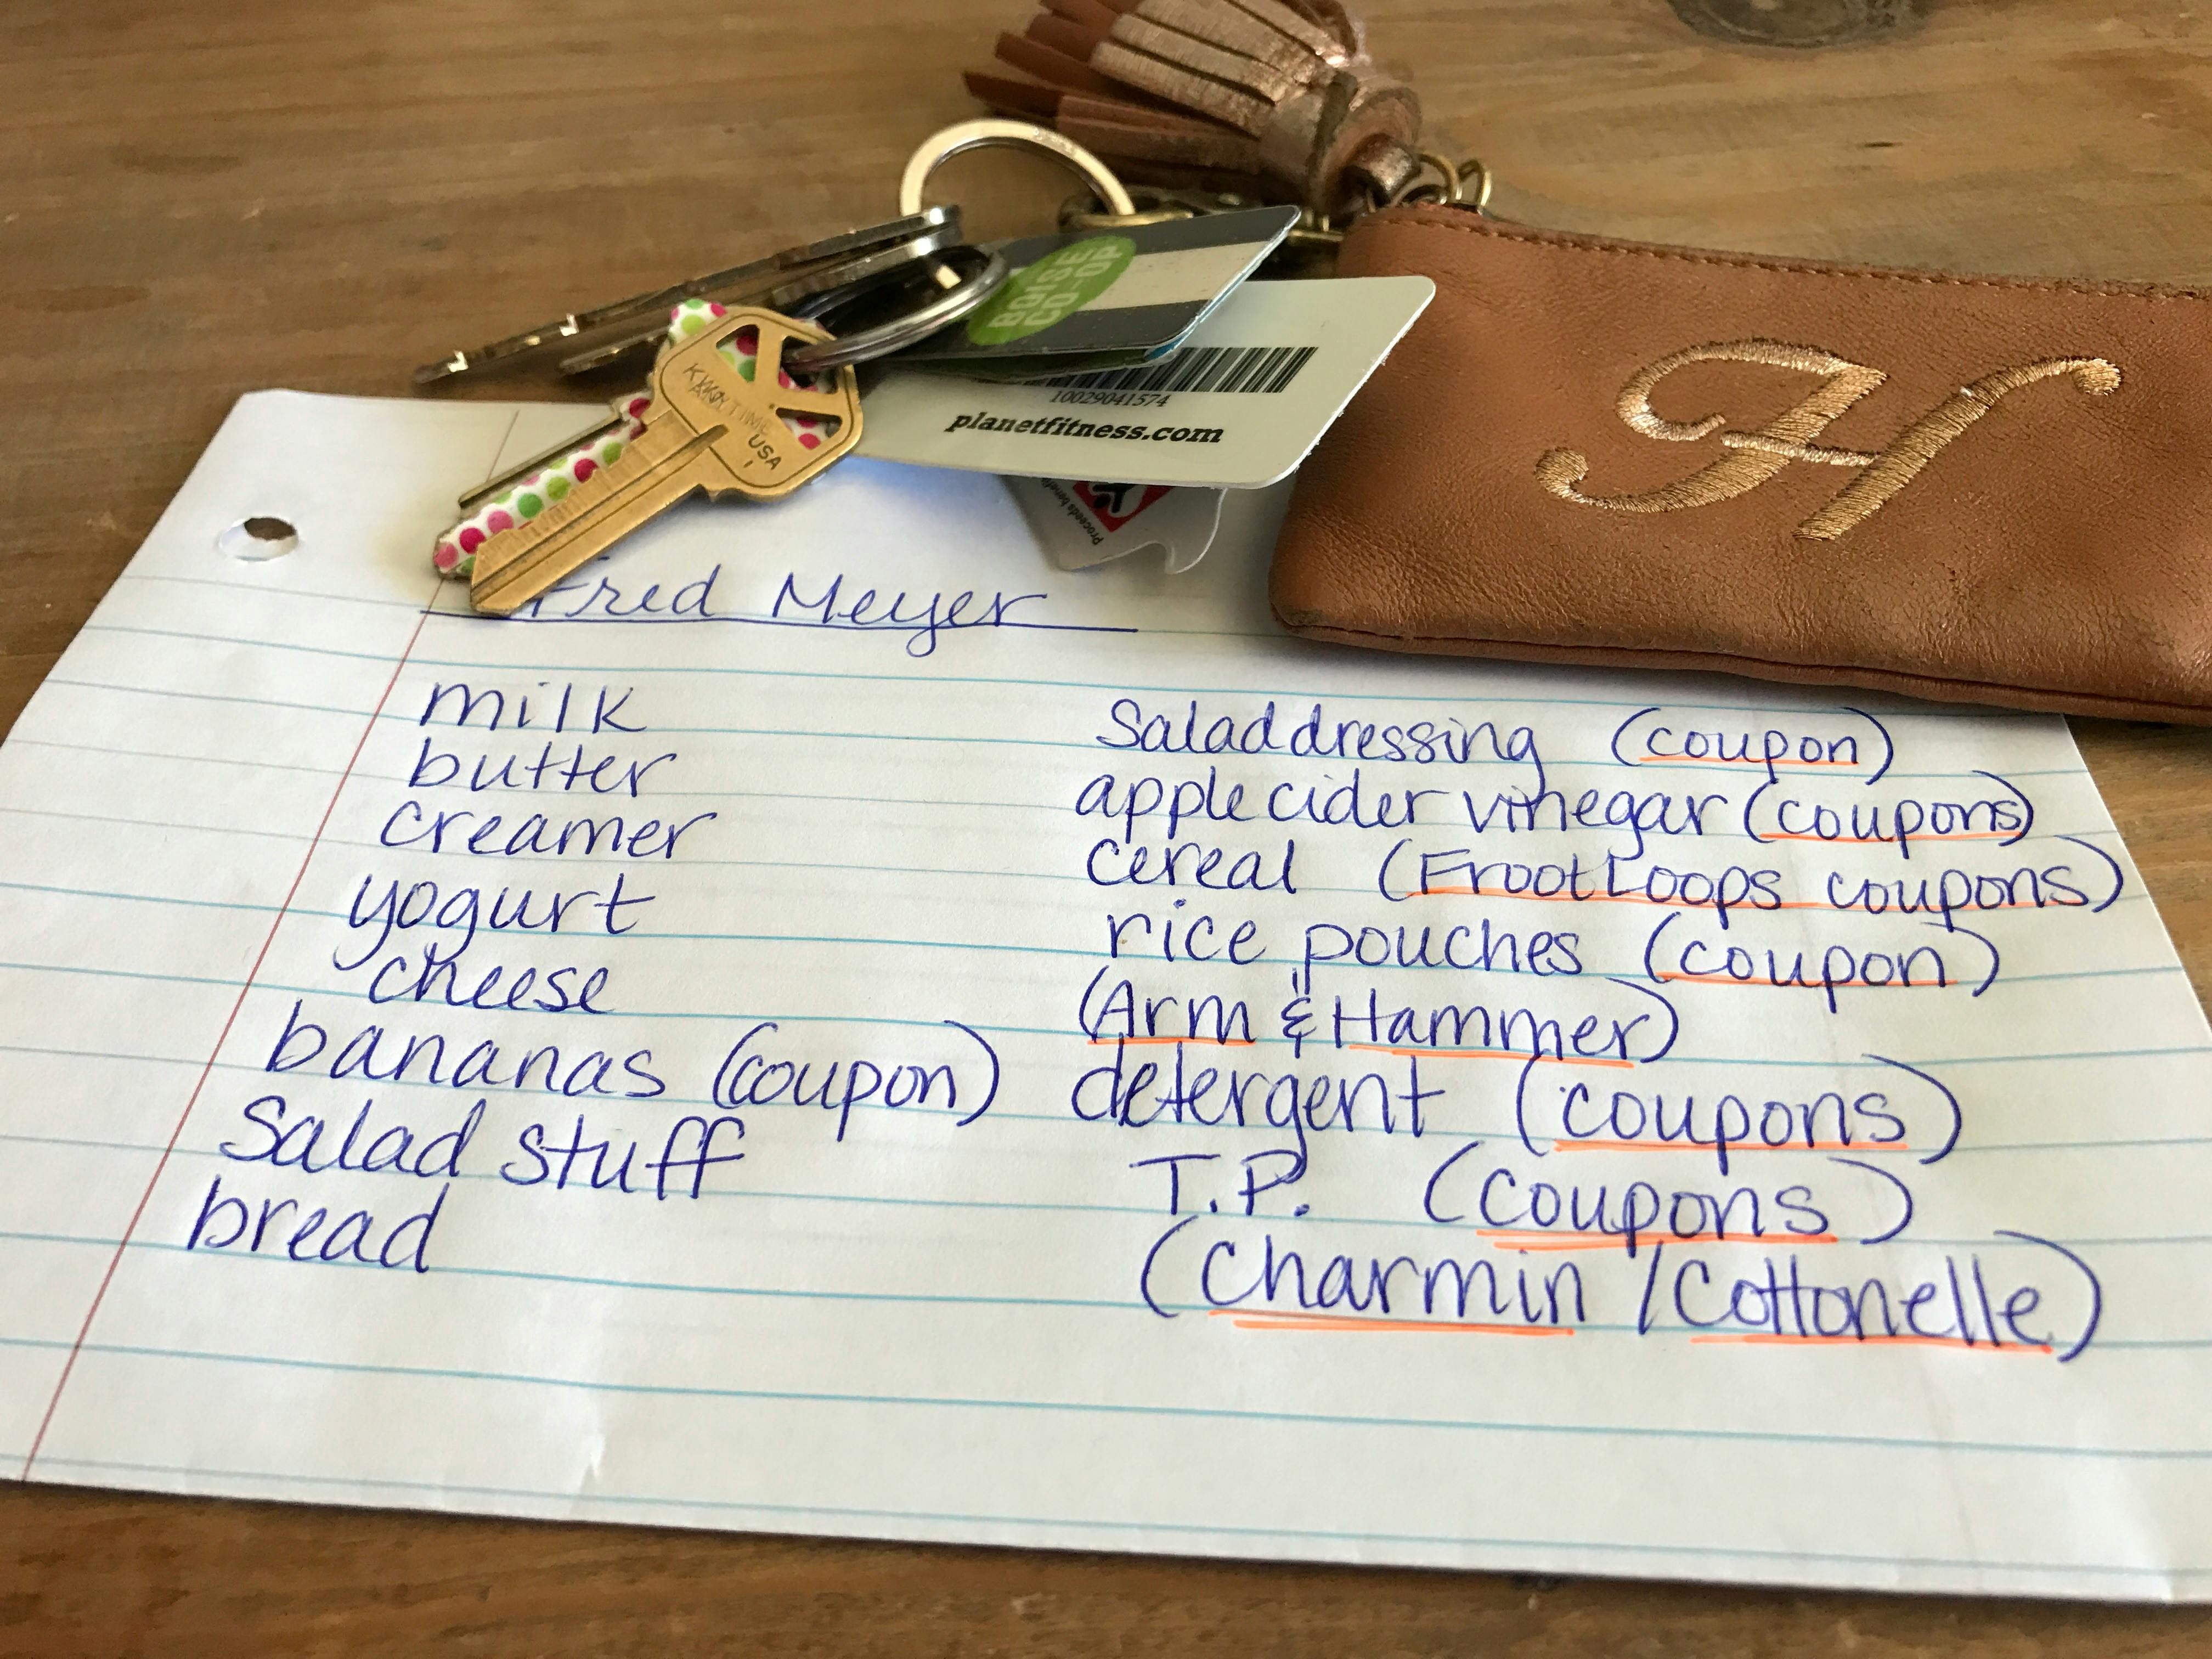 BOISE
CO-OP
10029041574
planetfitness.com
Proceeds benefi
USA
H
Fred Meyer
milk
butter
creamer
yogurt
cheese
bananas (coupon)
Salad stuff
bread
Salad dressing (coupon)
apple cider vinegar (coupons)
cereal (Froot Loops coupons)
rice pouches (coupon)
(Arm & Hammer)
detergent (coupons)
T.P. (coupons)
(Charmin / Cottonelle)